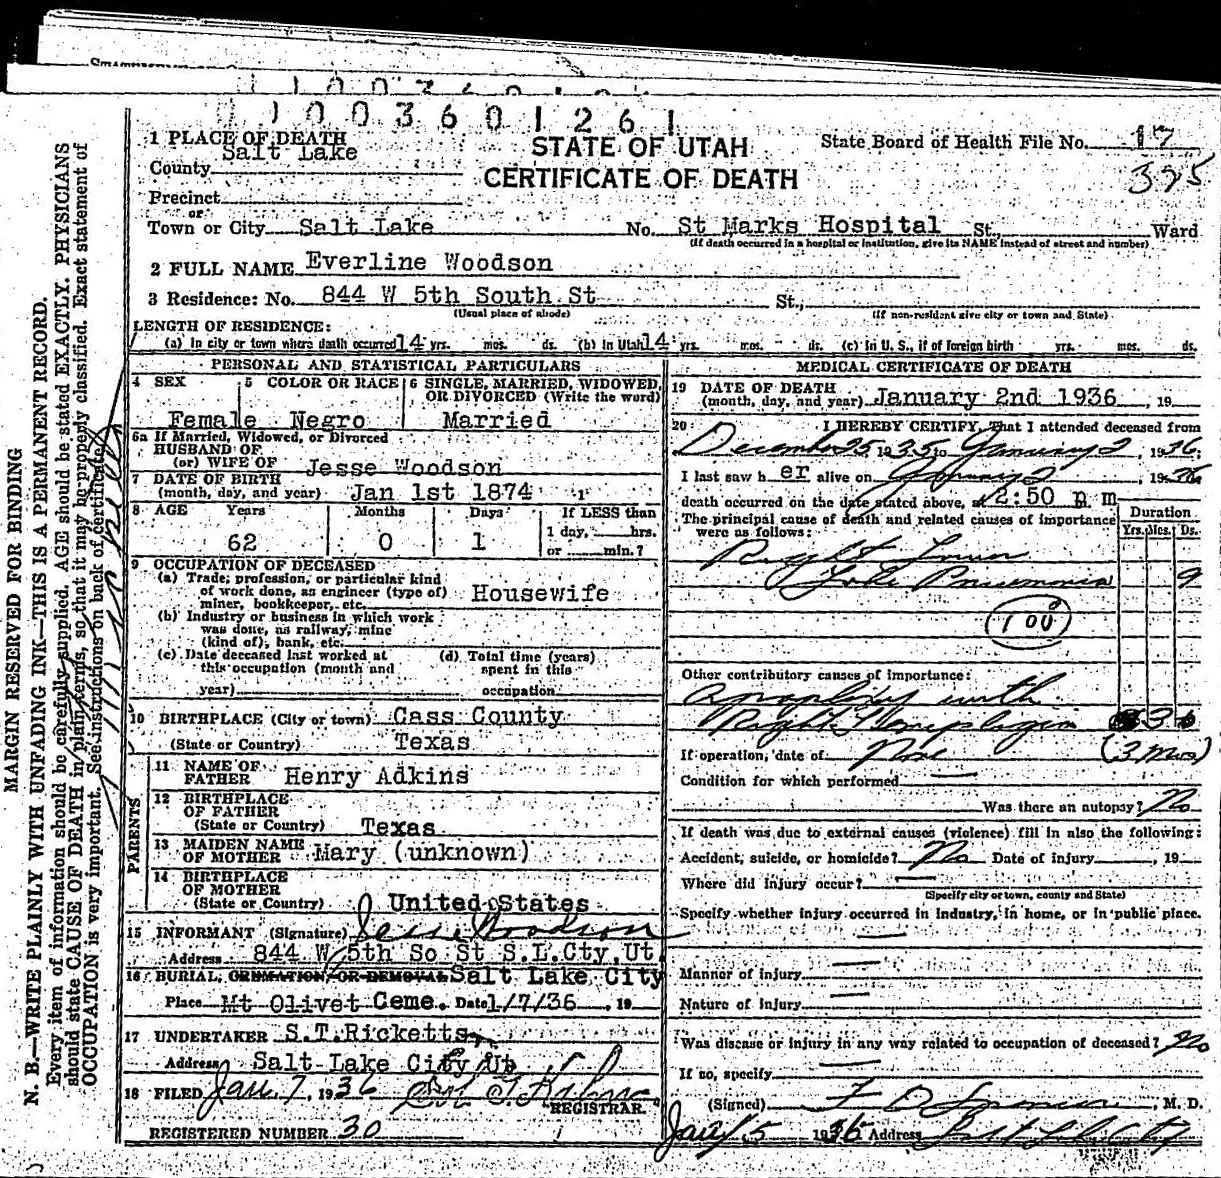 1 0 0 3 6 0 1 2 6 1
1 PLACE OF DEATH
Salt Lake
County
STATE OF UTAH
CERTIFICATE OF DEATH
State Board of Health File No. 17
325
Precinct
or
Town or City Salt Lake No. St Marks Hospital St., Ward
(If death occurred in a hospital or institution, give its NAME instead of street and number)
2 FULL NAME Everline Woodson
3 Residence: No. 844 W 5th South St St.,
(Usual place of abode) (If non-resident give city or town and State)
LENGTH OF RESIDENCE:
(a) In city or town where death occurred 14 yrs. mos. ds. (b) In Utah 14 yrs. mos. ds. (c) In U. S., if of foreign birth yrs. mos. ds.
PERSONAL AND STATISTICAL PARTICULARS
4 SEX 5 COLOR OR RACE 6 SINGLE, MARRIED, WIDOWED, OR DIVORCED (Write the word)
Female Negro Married
6a If Married, Widowed, or Divorced
HUSBAND OF
(or) WIFE OF Jesse Woodson
7 DATE OF BIRTH
(month, day, and year) Jan 1st 1874
8 AGE Years Months Days If LESS than
1 day, hrs.
62 0 1 or min.?
9 OCCUPATION OF DECEASED
(a) Trade, profession, or particular kind
of work done, as engineer (type of)
miner, bookkeeper, etc. Housewife
(b) Industry or business in which work
was done, as railway, mine
(kind of), bank, etc.
(c) Date deceased last worked at (d) Total time (years)
this occupation (month and spent in this
year) occupation
10 BIRTHPLACE (City or town) Cass County
(State or Country) Texas
PARENTS
11 NAME OF
FATHER Henry Adkins
12 BIRTHPLACE
OF FATHER
(State or Country) Texas
13 MAIDEN NAME
OF MOTHER Mary (unknown)
14 BIRTHPLACE
OF MOTHER
(State or Country) United States
15 INFORMANT (Signature) Jesse Woodson
Address 844 W 5th So St S.L.Cty.Ut
16 BURIAL, CREMATION, OR REMOVAL Salt Lake City
Place Mt Olivet Ceme. Date 1/7/36 , 19
17 UNDERTAKER S.T.Ricketts
Address Salt Lake City Ut
18 FILED Jan. 7, 1936
REGISTRAR.
REGISTERED NUMBER 30
MEDICAL CERTIFICATE OF DEATH
19 DATE OF DEATH
(month, day, and year) January 2nd 1936 , 19
20 I HEREBY CERTIFY, That I attended deceased from
December 25 1935 to January 2, 1936;
I last saw h er alive on January 2 1936
death occurred on the date stated above, at 2:50 p m
The principal cause of death and related causes of importance were as follows:
Duration
Yrs. Mos. Ds.
Right Lower
Lobe Pneumonia 9
100
Other contributory causes of importance:
Apoplexy with
Right Hemiplegia 3
(3 mos)
If operation, date of None
Condition for which performed
Was there an autopsy? No
If death was due to external causes (violence) fill in also the following:
Accident, suicide, or homicide? No Date of injury , 19
Where did injury occur?
(Specify city or town, county and State)
Specify whether injury occurred in industry, in home, or in public place.
Manner of injury
Nature of injury
Was disease or injury in any way related to occupation of deceased? No
If so, specify
(Signed) , M. D.
1936 Address Salt Lake City
MARGIN RESERVED FOR BINDING
N. B.—WRITE PLAINLY WITH UNFADING INK—THIS IS A PERMANENT RECORD.
Every item of information should be carefully supplied. AGE should be stated EXACTLY. PHYSICIANS
should state CAUSE OF DEATH in plain terms, so that it may be properly classified. Exact statement of
OCCUPATION is very important. See instructions on back of certificate.